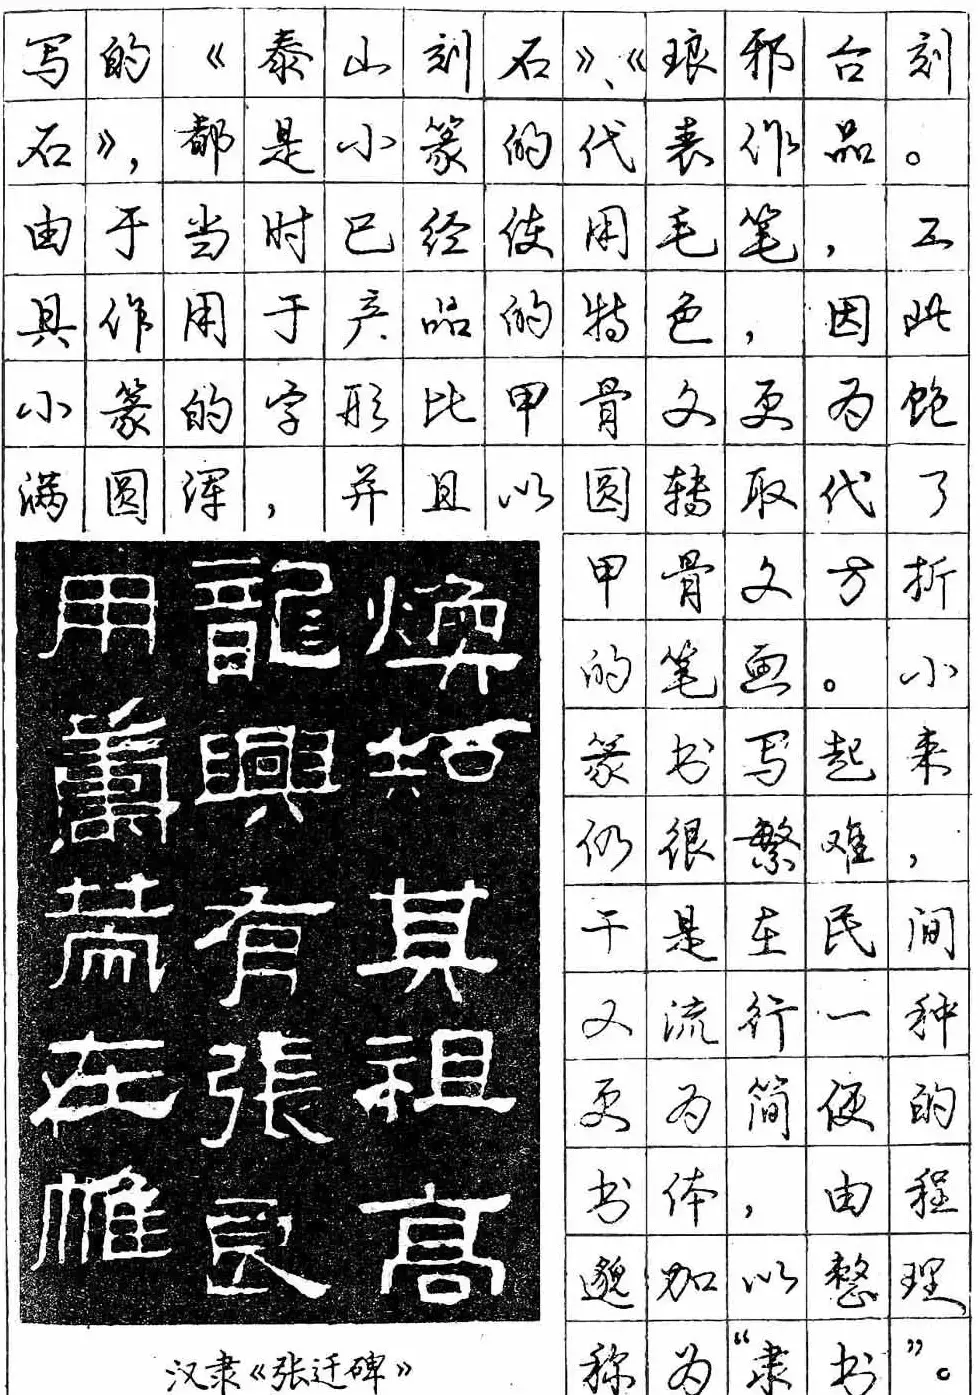 写的《泰山刻石》、《琅邪台刻
石》，都是小篆的代表作品。
由于当时已经使用毛笔，工
具作用于产品的特色，因此
小篆的字形比甲骨文更为饱
满圆浑，并且以圆转取代了
甲骨文方折
的笔画。小
篆书写起来
仍很繁难，
于是在民间
又流行一种
更为简便的
书体，由程
邈加以整理
称为“隶书”。
煥知其祖高
龍興有張良
用籌策在帷
汉隶《张迁碑》